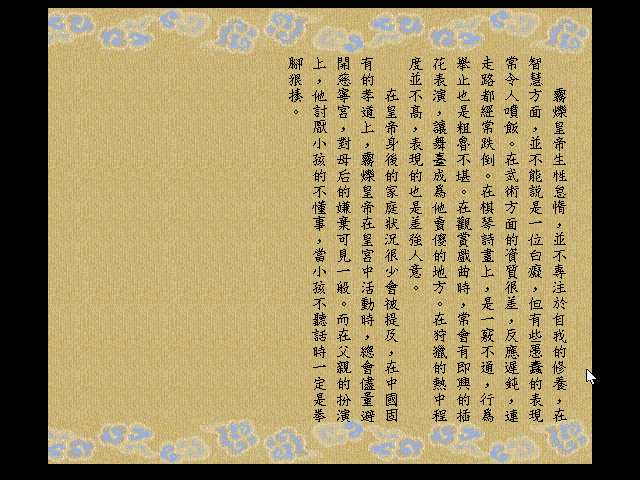 霧爍皇帝生性怠惰，並不專注於自我的修養，在
智慧方面，並不能說是一位白癡，但有些愚蠢的表現
常令人噴飯。在武術方面的資質很差，反應遲鈍，連
走路都經常跌倒。在棋琴詩畫上，是一竅不通，行為
舉止也是粗魯不堪。在觀賞戲曲時，常會有即興的插
花表演，讓舞臺成為他賣傻的地方。在狩獵的熱中程
度並不高，表現的也是差強人意。
在皇帝身後的家庭狀況很少會被提及，在中國固
有的孝道上，霧爍皇帝在皇宮中活動時，總會儘量避
開慈寧宮，對母后的嫌棄可見一般。而在父親的扮演
上，他討厭小孩的不懂事，當小孩不聽話時一定是拳
腳狠揍。